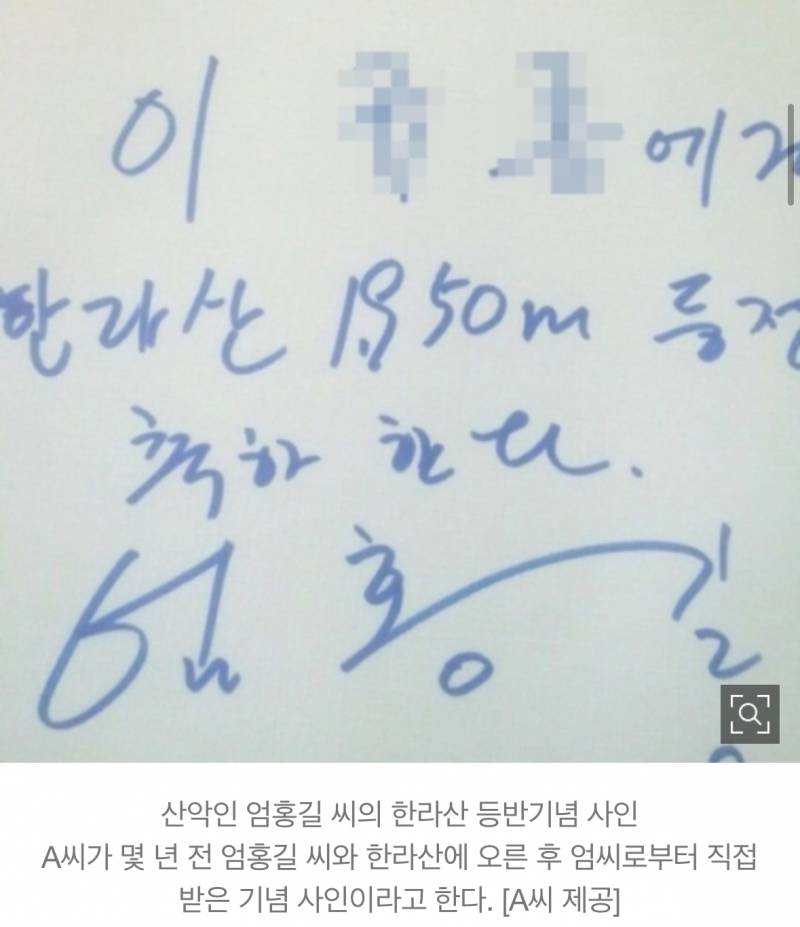 이 에게
한라산 1950m 등정
축하 한다.
엄홍길
산악인 엄홍길 씨의 한라산 등반기념 사인
A씨가 몇 년 전 엄홍길 씨와 한라산에 오른 후 엄씨로부터 직접
받은 기념 사인이라고 한다. [A씨 제공]